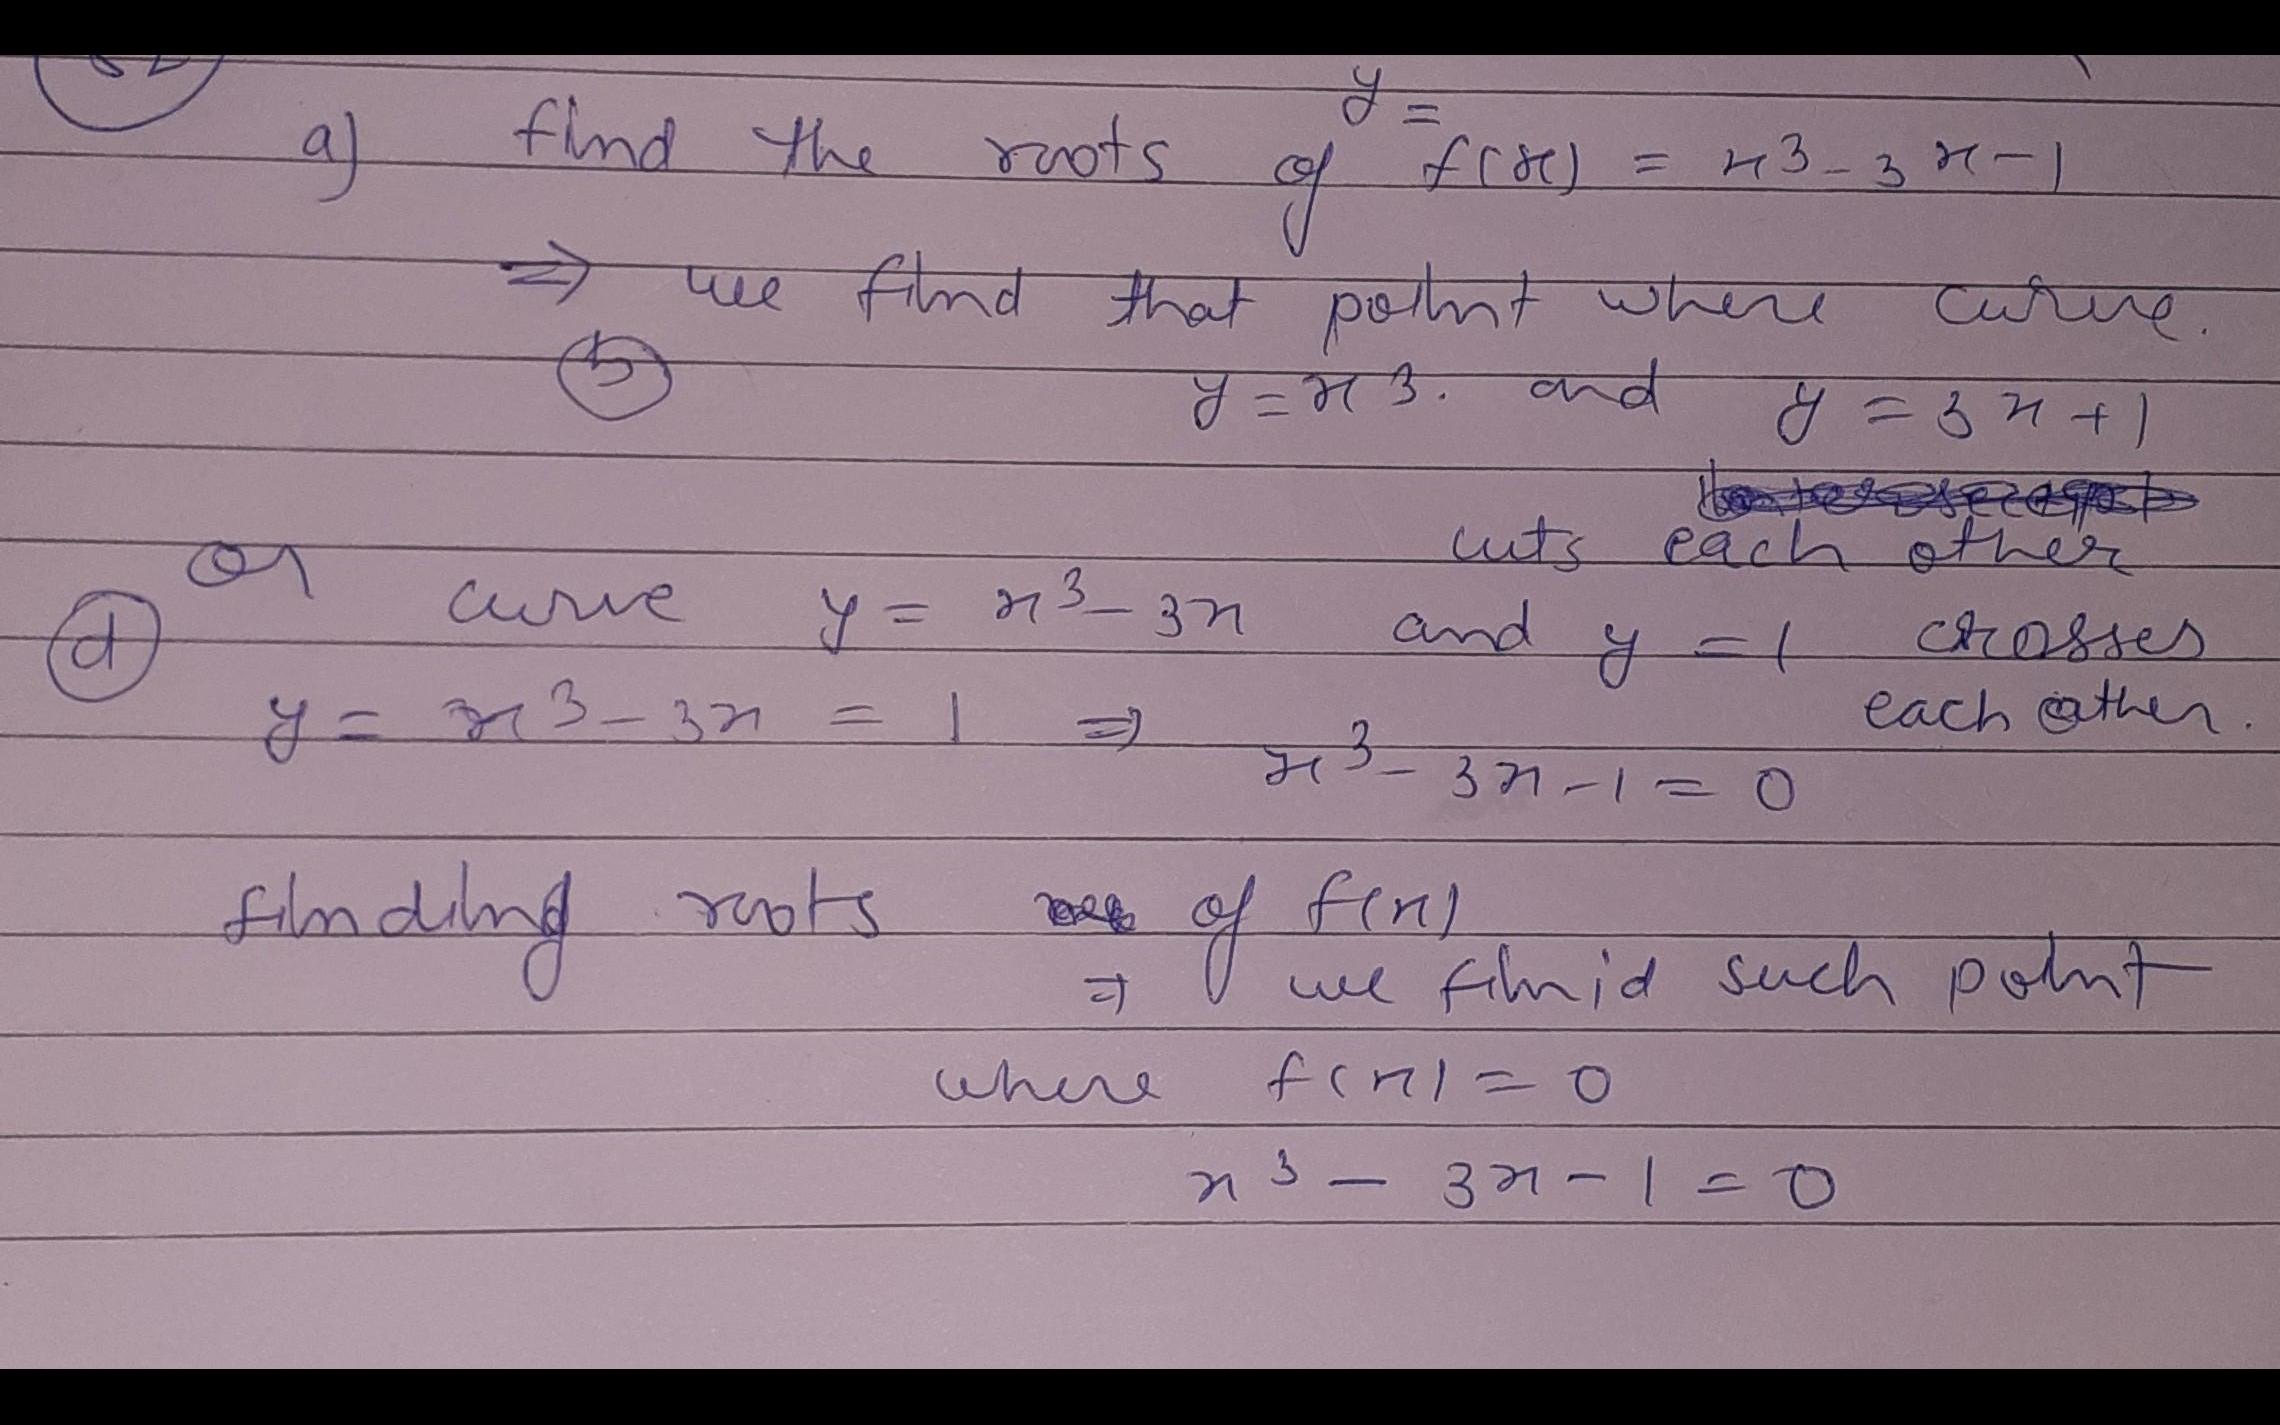 a) find the roots of y = f(x) = x3-3x-1
⇒ we find that point where curve.
b y=x3. and y = 3x+1
cuts each other
or
d curve y = x3-3x and y = 1 crosses
each other.
y = x3-3x = 1 ⇒ x3-3x-1=0
finding roots of f(x)
⇒ we find such point
where f(x)=0
x3 - 3x-1=0